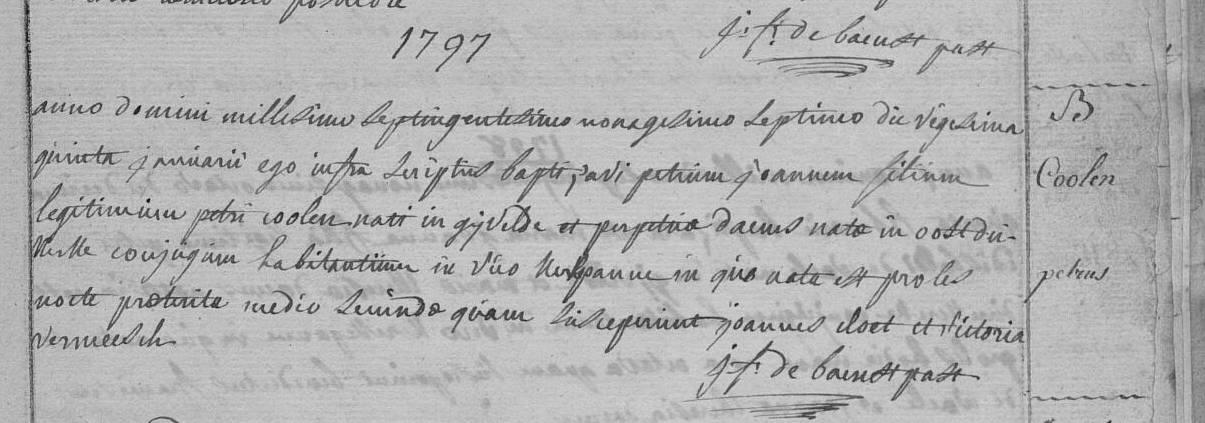 1797
j: f: de baenst past
anno domini millesimo septingentesimo nonagesimo septimo die vigesima
quinta januarii ego infra scriptus baptisavi petrum joannem filium
legitimum petri coolen nati in gijvelde et perpetuæ daems natæ in oostdu-
kerke conjugum habitantium in vico in quo nata est proles
nocte præterita medio secundæ quam susceperunt joannes cloet et victoria
vermeesch
j: f: de baenst past
B
Coolen
petrus